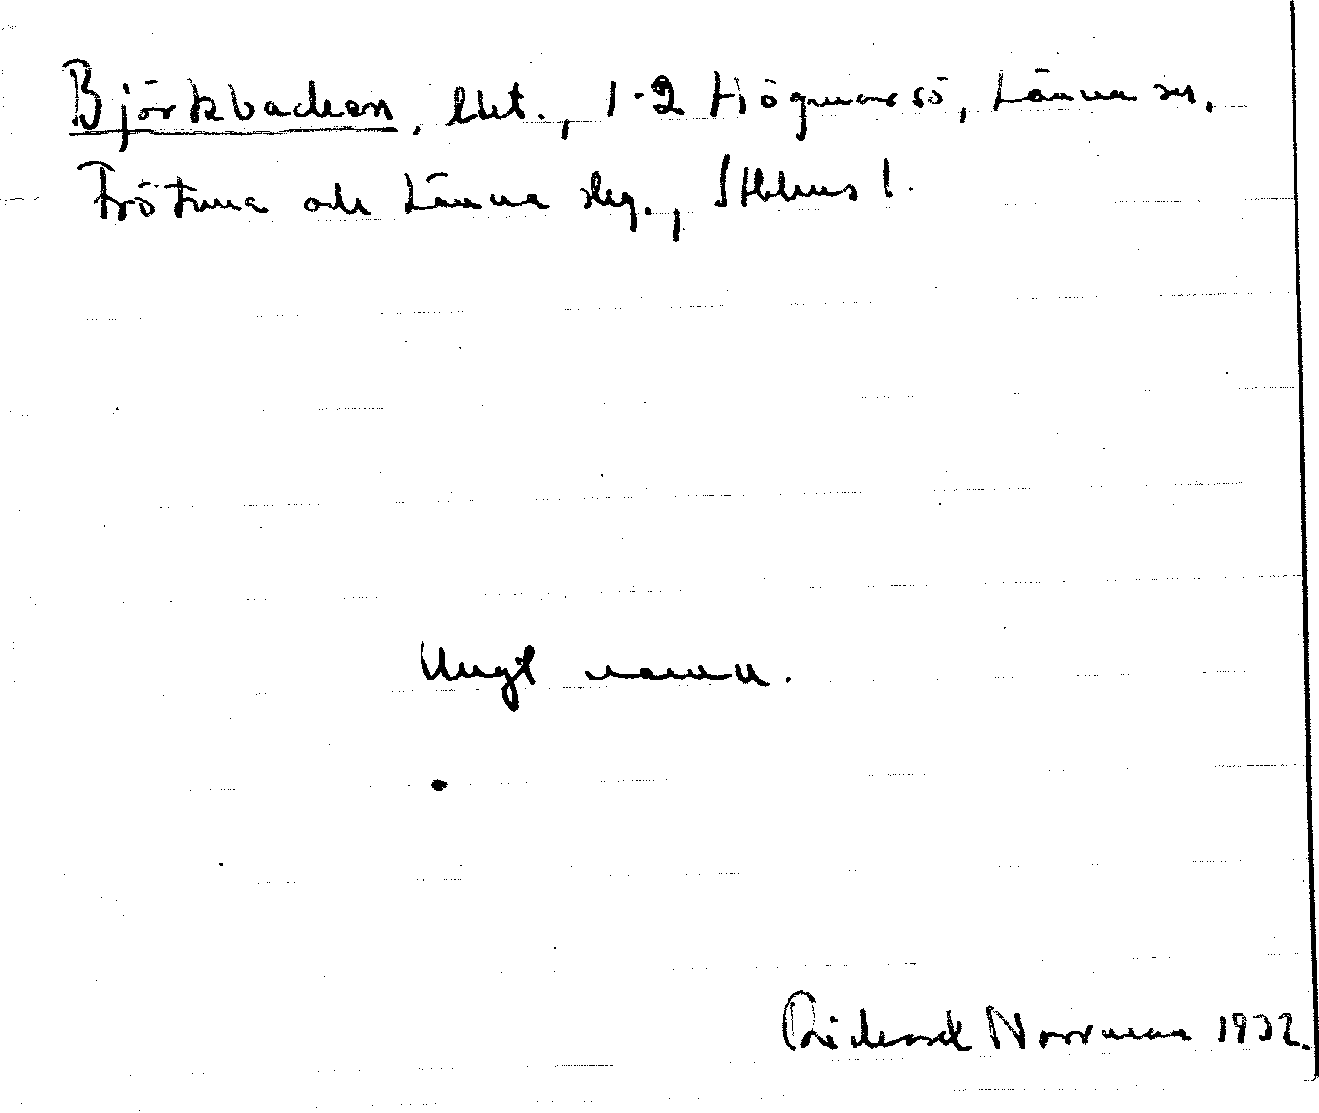 Björkbacken, lht., 1-2 Högmarsö, Länna sn,
Frötuna och Länna slg., Sthlms l.
Ungt namn.
Rickard Norrman 1932.